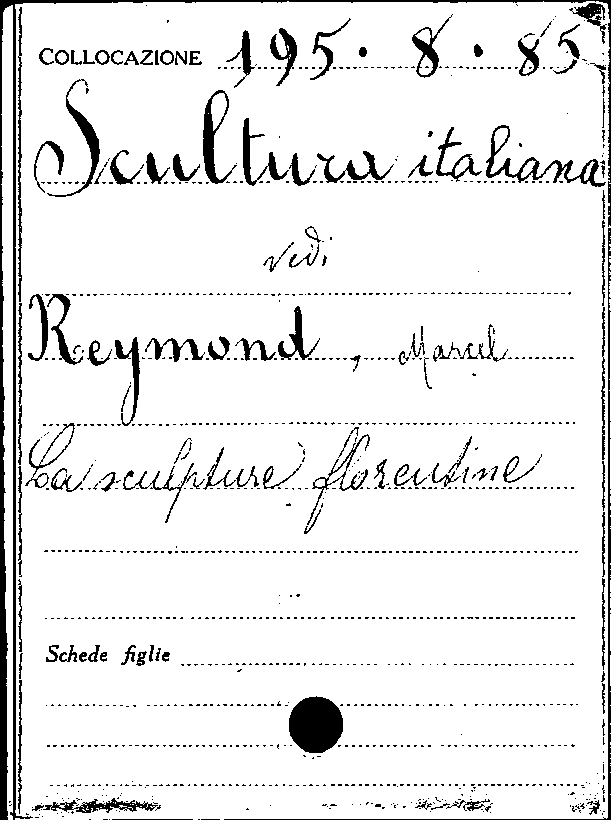 COLLOCAZIONE 195 · 8 · 85
Scultura italiana
vedi
Reymond, Marcel
La sculpture florentine
Schede figlie